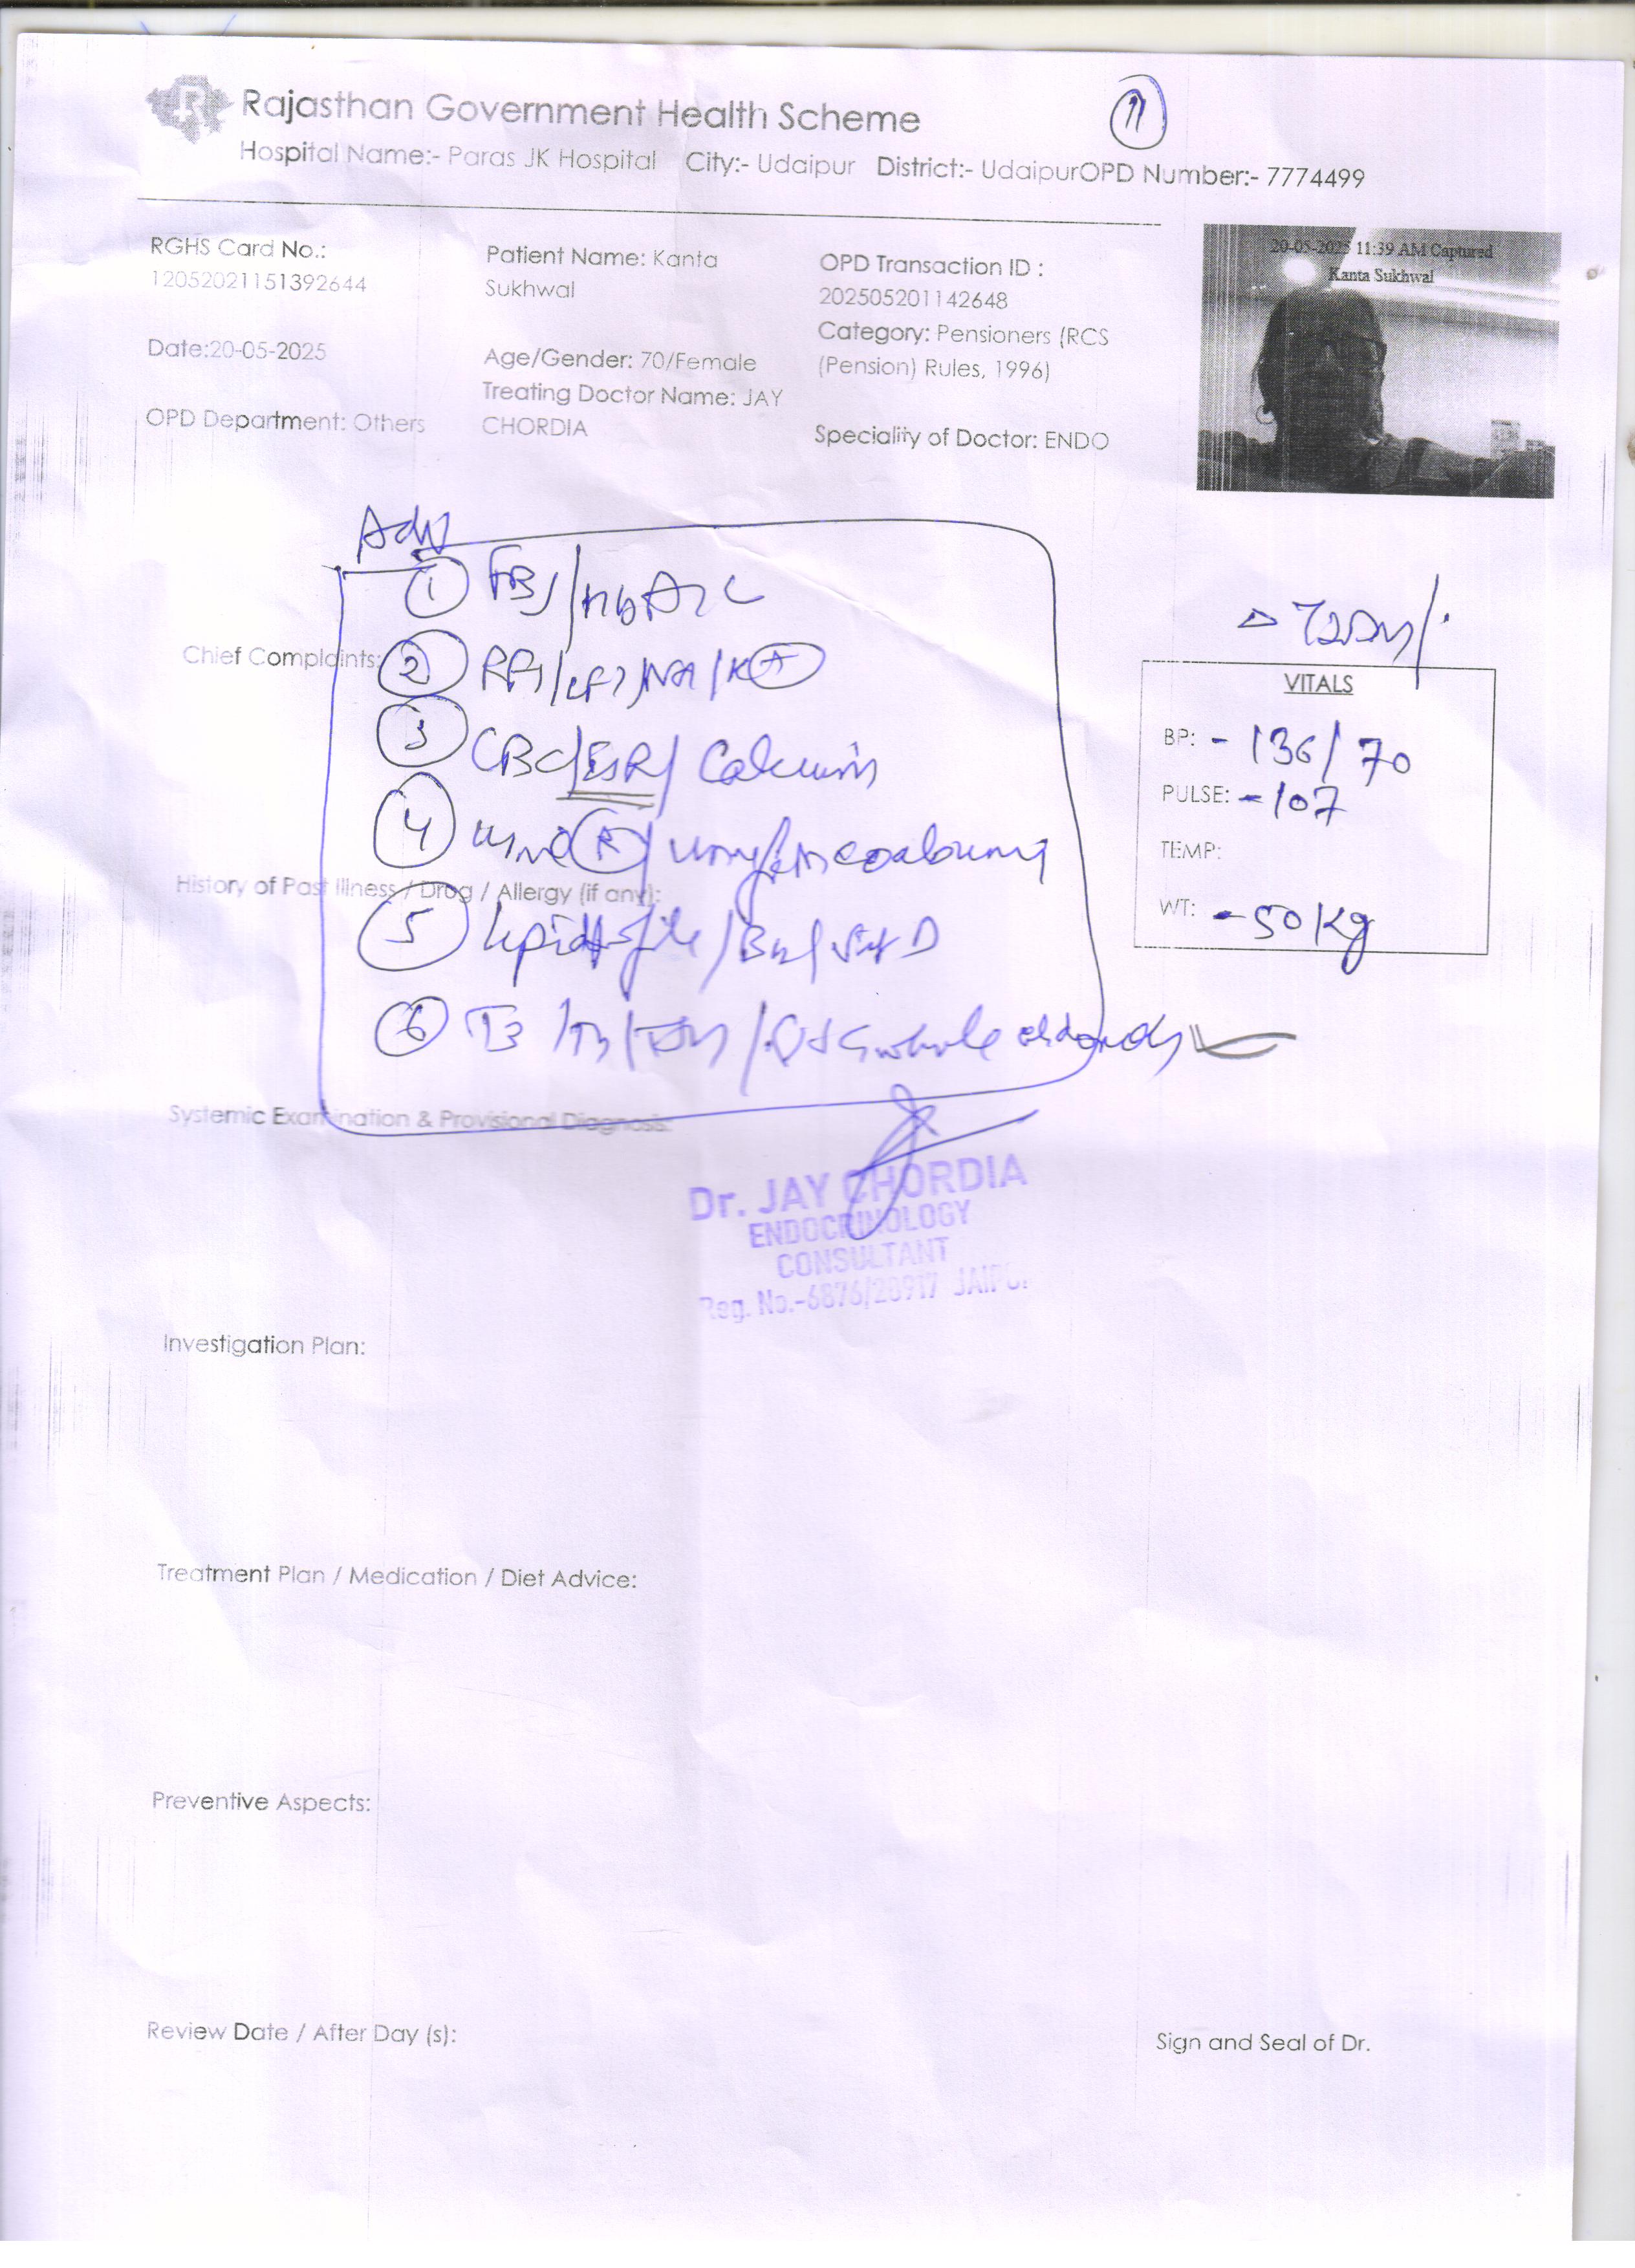 Rajasthan Government Health Scheme
Hospital Name:- Paras JK Hospital City:- Udaipur District:- UdaipurOPD Number:- 7774499
RGHS Card No.:
12052021151392644
Patient Name: Kanta
Sukhwal
OPD Transaction ID :
202505201142648
20-05-2025 11:39 AM Captured
Kanta Sukhwal
Date:20-05-2025
Age/Gender: 70/Female
Category: Pensioners (RCS
(Pension) Rules, 1996)
OPD Department: Others
Treating Doctor Name: JAY
CHORDIA
Speciality of Doctor: ENDO
Adv
1 FBS/HbA1c
Δ T2DM
Chief Complaints:
2 RFT/LFT/NA/K+
3 CBC/ESR/Calcium
4 Urine R/
History of Past Illness / Drug / Allergy (if any):
5 Lipid Profile/B12/Vit D
6 T3 /T4/TSH/ whole
VITALS
BP: - 136/70
PULSE: - 107
TEMP:
WT: - 50 Kg
Systemic Examination & Provisional Diagnosis:
Dr. JAY CHORDIA
ENDOCRINOLOGY
CONSULTANT
Reg. No.-6876/20917 JAIPUR
Investigation Plan:
Treatment Plan / Medication / Diet Advice:
Preventive Aspects:
Review Date / After Day (s):
Sign and Seal of Dr.